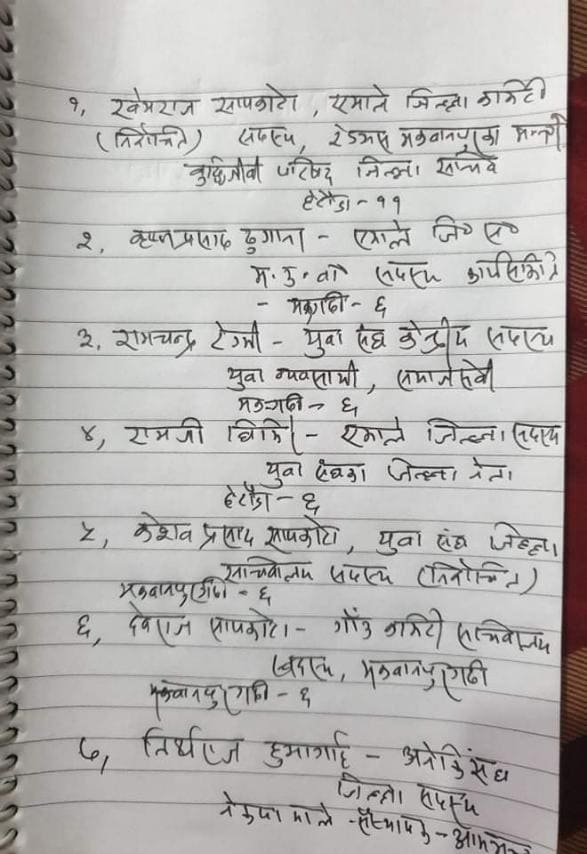 १, खेमराज सापकोटा, एमाले जिल्ला कमिटी
(निर्वाचित) सदस्य, रेडक्रस मकवानपुरका मन्त्री
बुद्धिजीवी परिषद जिल्ला सचिव
हेटौडा - ११
२, कृष्णप्रसाद दुगाना - एमाले जि० स०
सदस्य कार्यसमिति
- मकगढी - ६
३, रामचन्द्र टेग्मी - युवा संघ केन्द्रीय सदस्य
युवा व्यवसायी, समाजसेवी
मकगढी - ६
४, रामजी घिमिरे - एमाले जिल्ला सदस्य
युवा संघका जिल्ला नेता
हेटौडा - ६
५, केशव प्रसाद सापकोटा, युवा संघ जिल्ला
सचिवालय सदस्य (निर्वाचित)
मकवानपुरगढी - ६
६, देवराज सापकोटा - गाँउ कमिटी सचिवालय
सदस्य, मकवानपुरगढी
मकवानपुरगढी - ६
७, तिर्थराज हुमागाई - अनेकिसंघ
जिल्ला सदस्य
नेकपा माले - संस्थापक -